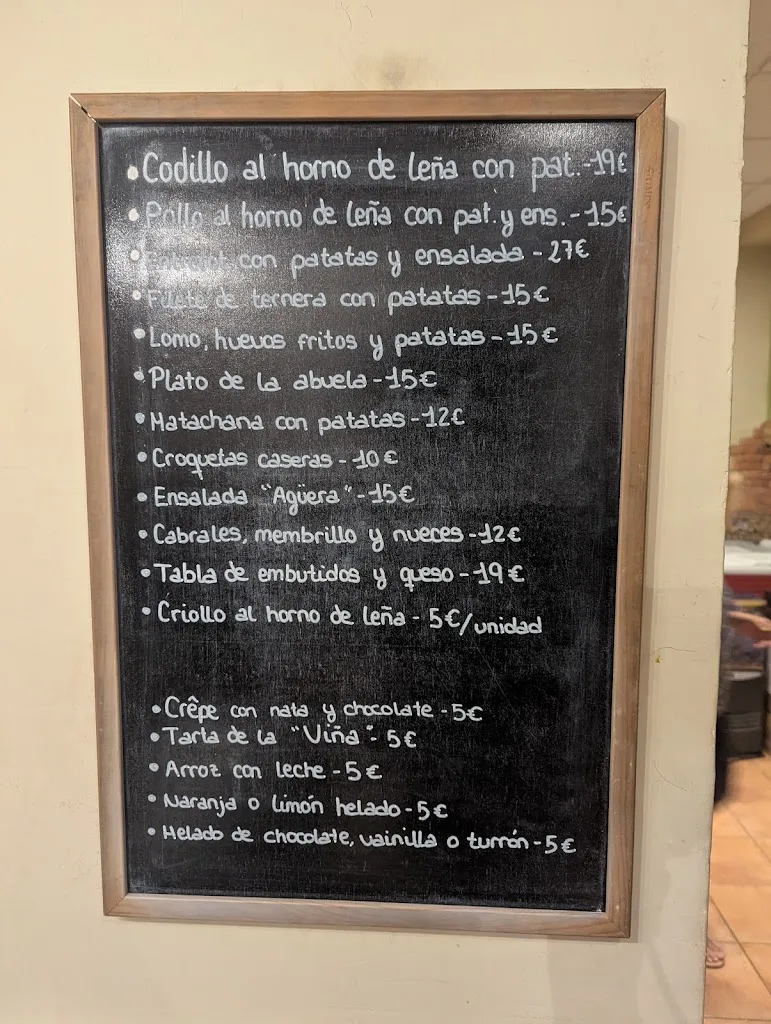 • Codillo al horno de leña con pat.-19€
• Pollo al horno de leña con pat. y ens.-15€
• con patatas y ensalada - 27€
• Filete de ternera con patatas - 15€
• Lomo, huevos fritos y patatas - 15€
• Plato de la abuela - 15€
• Matachana con patatas - 12€
• Croquetas caseras - 10€
• Ensalada "Agüera" - 15€
• Cabrales, membrillo y nueces - 12€
• Tabla de embutidos y queso - 19€
• Criollo al horno de leña - 5€/unidad
• Crêpe con nata y chocolate - 5€
• Tarta de la "Viña" - 5€
• Arroz con leche - 5€
• Naranja o limón helado - 5€
• Helado de chocolate, vainilla o turrón - 5€